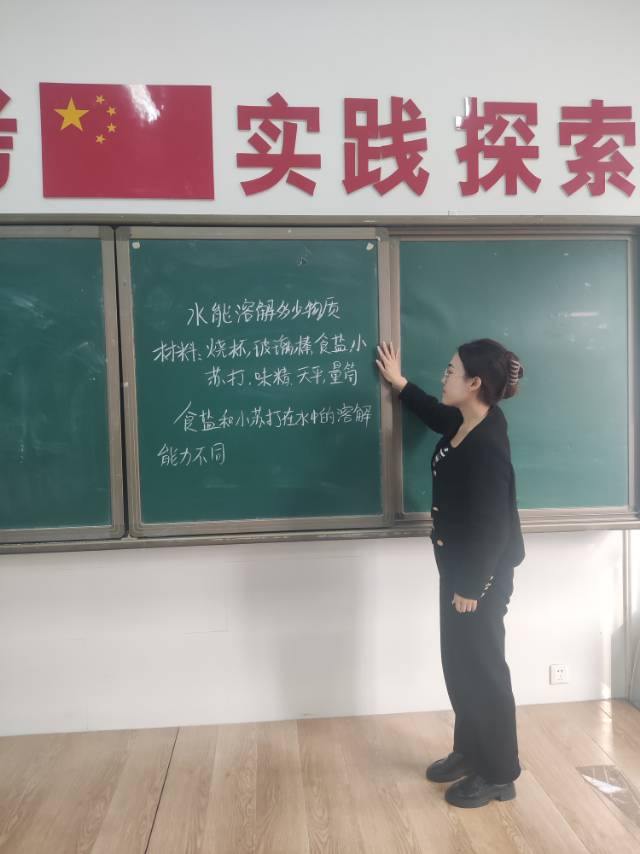 实践探索
水能溶解多少物质
材料：烧杯，玻璃棒，食盐，小
苏打，味精，天平，量筒
食盐和小苏打在水中的溶解
能力不同